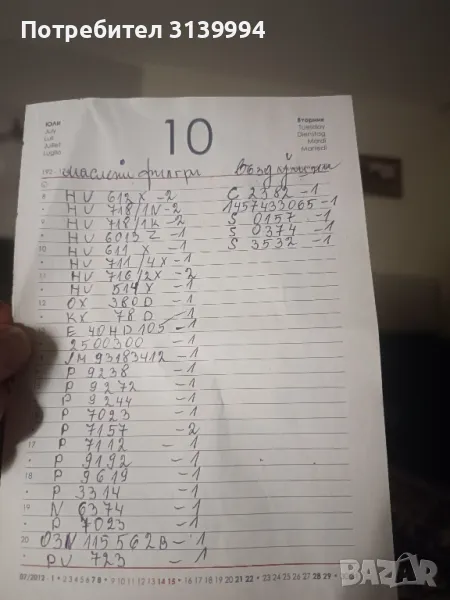 Потребител 3139994
ЮЛИ
July
Juli
Juillet
Luglio
10
Вторник
Tuesday
Dienstag
Mardi
Martedì
192
маслени филтри
Възд
8 HU 612 X -2
HU 718/1N -2
9 HU 718/1K -2
HU 6013 Z -1
10 HU 611 X -1
HU 711/4X -1
11 HU 716/2X -2
HU 514 X -1
12 OX 380D -1
KX 78D -1
E 40HD105 -1
2500300 -1
93183412 -1
P 9238 -1
P 9272 -1
P 9244 -1
P 7023 -1
P 7157 -2
17 P 7112 -1
P 9192 -1
18 P 9619 -1
P 3314 -1
19 N 6374 -1
P 7023 -1
20 03N 115 562B -1
PU 723 -1
C 2382 -1
1457433065 -1
S 0157 -1
S 0374 -1
S 3532 -1
07/2012 · 1 • 2 3 4 5 6 7 8 • 9 10 11 12 13 14 15 • 16 17 18 19 20 21 22 • 23 24 25 26 27 28 29 •
BAZAR